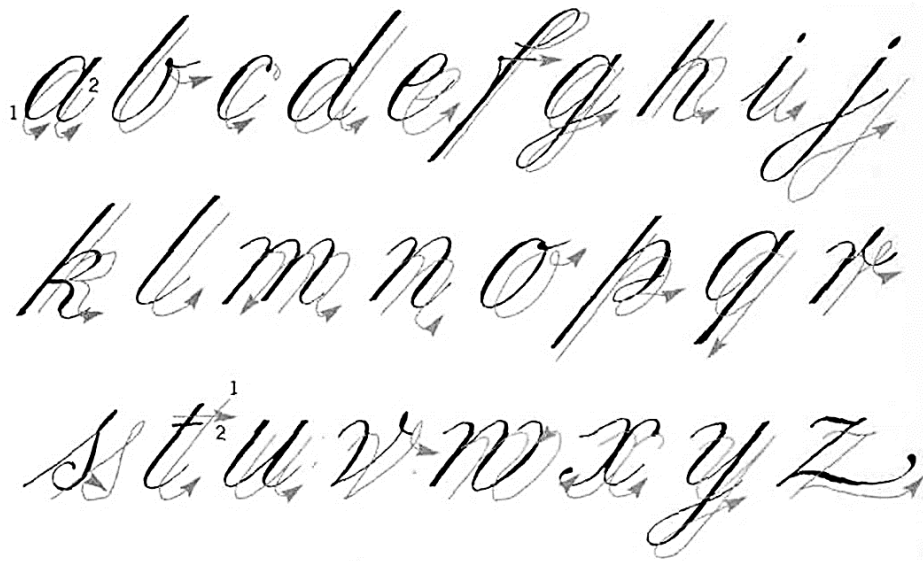 1 a 2 b c d e f g h i j
k l m n o p q r
s t 1 2 u v w x y z